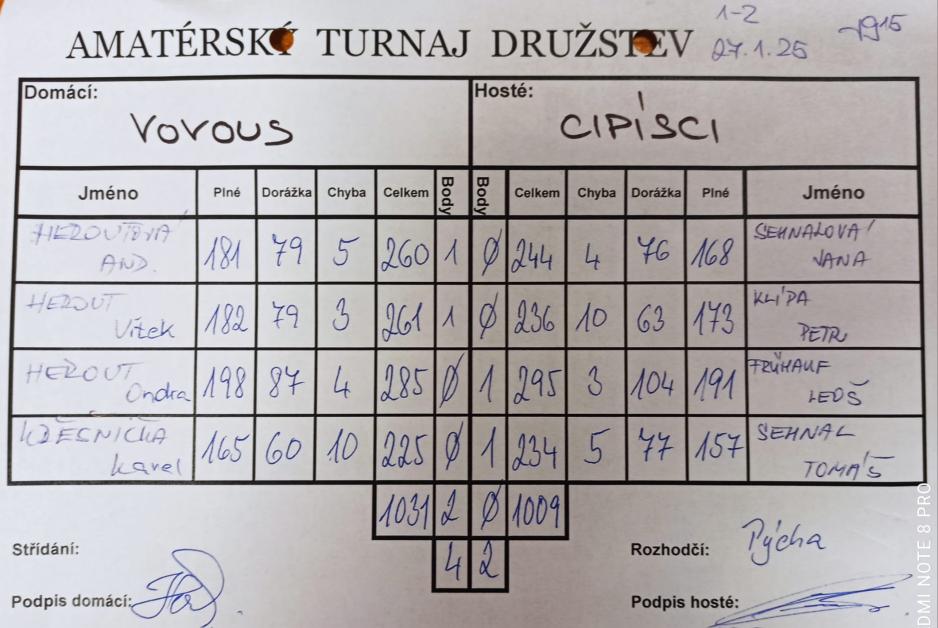 1-2
AMATÉRSKÝ TURNAJ DRUŽSTEV 27.1.25
Domácí: Hosté:
VOVOUS CIPÍSCI
Jméno Plné Dorážka Chyba Celkem Body Body Celkem Chyba Dorážka Plné Jméno
HEROUTOVÁ SEHNALOVÁ
AND. 181 79 5 260 1 0 244 4 76 168 JANA
HEROUT KLÍPA
Vítek 182 79 3 261 1 0 236 10 63 173 PETR
HEROUT FRÜHAUF
Ondra 198 87 4 285 0 1 295 3 104 191 LEOŠ
SEHNAL
Karel 165 60 10 225 0 1 234 5 77 157 TOMÁŠ
1031 2 0 1009
Střídání: Rozhodčí: Pýcha
4 2
Podpis domácí: Podpis hosté:
DMI NOTE 8 PRO